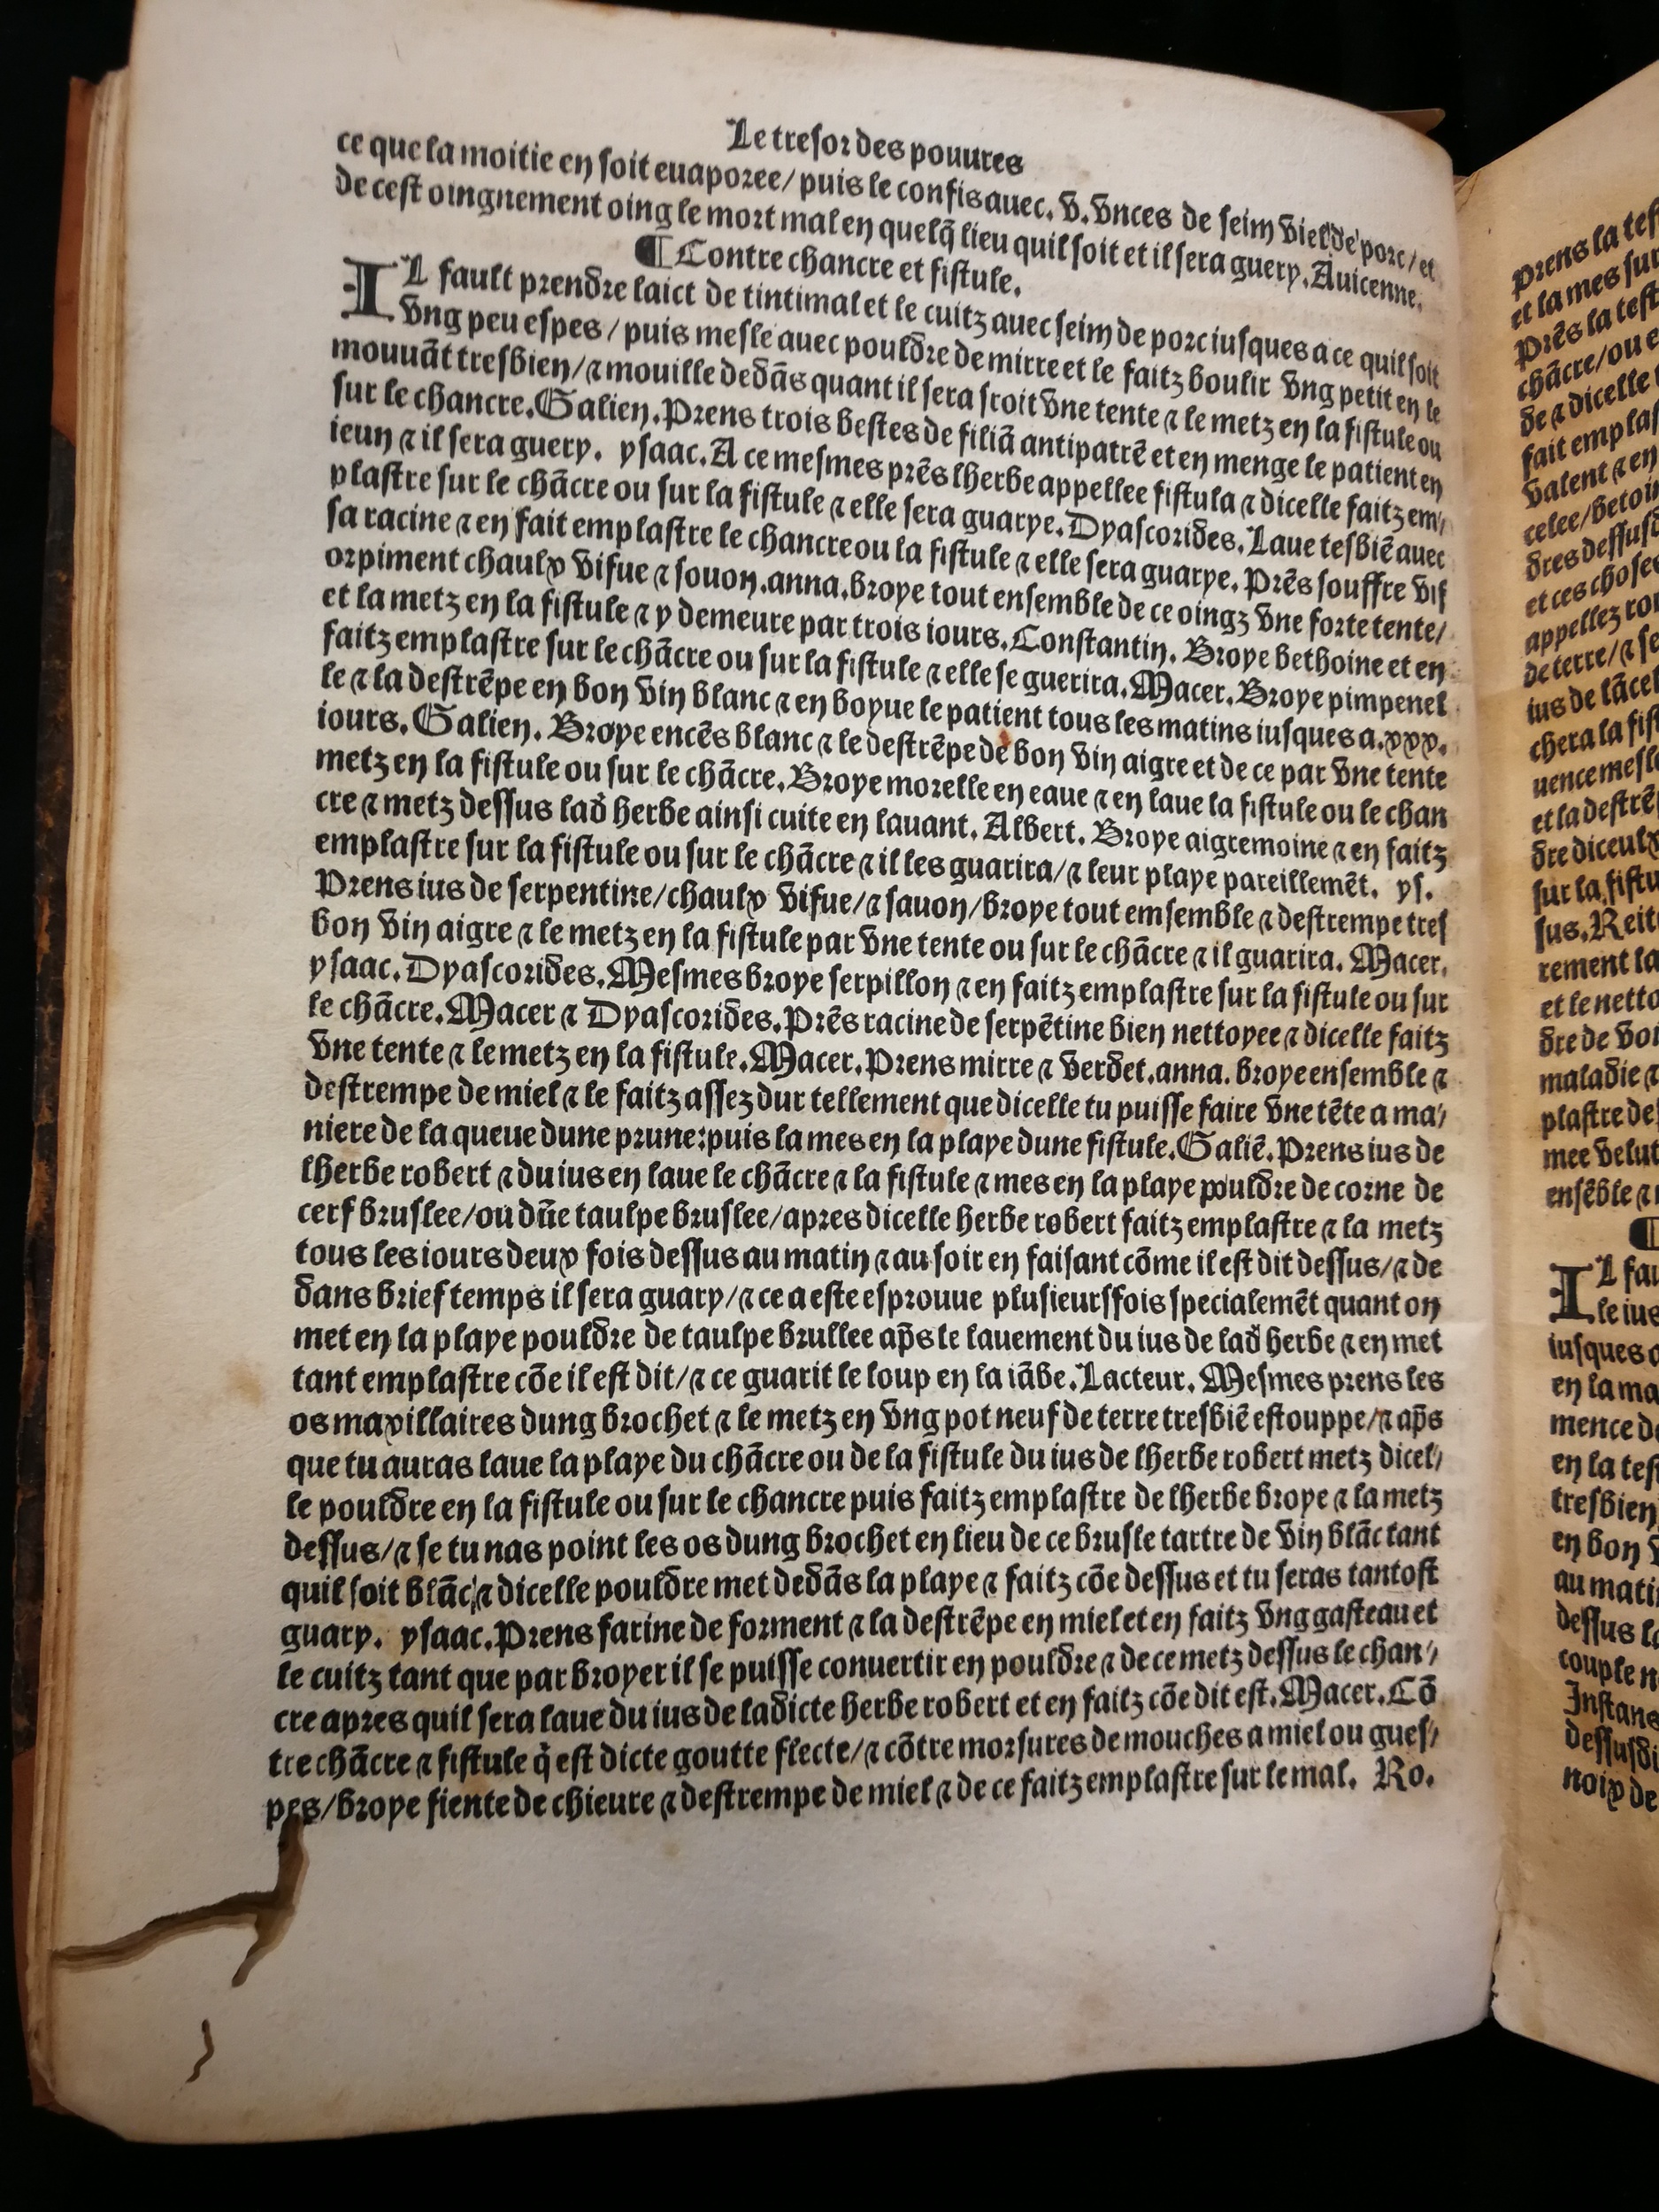 Le tresor des pouures
ce que la moitie en soit euaporee/ puis le confis auec. v. vnces de seim viel de porc/ et
de cest oingnement oing le mort mal en quelq̃ lieu quil soit et il sera guery. Auicenne.
¶ Contre chancre et fistule.
IL fault prendre laict de tintimal et le cuitz auec seim de porc iusques a ce quil soit
vng peu espes / puis mesle auec pouldre de mirre et le faitz boulir vng petit en le
mouuãt tresbien/ ⁊ mouille dedãs quant il sera froit vne tente ⁊ le metz en la fistule ou
sur le chancre. Galien. Prens trois bestes de filiã antipatrẽ et en menge le patient en
ieun ⁊ il sera guery. ysaac. A ce mesmes prẽs lherbe appellee fistula ⁊ dicelle faitz em/
plastre sur le chãcre ou sur la fistule ⁊ elle sera guarye. Dyascorides. Laue tesbiẽ auec
sa racine ⁊ en fait emplastre le chancre ou la fistule ⁊ elle sera guarye. Prẽs souffre vif
orpiment chaulx vifue ⁊ souon. anna. broye tout ensemble de ce oingz vne forte tente/
et la metz en la fistule ⁊ y demeure par trois iours. Constantin. Broye bethoine et en
faitz emplastre sur le chãcre ou sur la fistule ⁊ elle se guerira. Macer. Broye pimpenel
le ⁊ la destrẽpe en bon vin blanc ⁊ en boyue le patient tous les matins iusques a. xxx.
iours. Galien. Broye encẽs blanc ⁊ le destrẽpe de bon vin aigre et de ce par vne tente
metz en la fistule ou sur le chãcre. Broye morelle en eaue ⁊ en laue la fistule ou le chan
cre ⁊ metz dessus lad̃ herbe ainsi cuite en lauant. Albert. Broye aigremoine ⁊ en faitz
emplastre sur la fistule ou sur le chãcre ⁊ il les guarira/ ⁊ leur playe pareillemẽt. ys.
Prens ius de serpentine/ chaulx vifue/ ⁊ sauon/ broye tout emsemble ⁊ destrempe tres
bon vin aigre ⁊ le metz en la fistule par vne tente ou sur le chãcre ⁊ il guarira. Macer.
ysaac. Dyascorides. Mesmes broye serpillon ⁊ en faitz emplastre sur la fistule ou sur
le chãcre. Macer ⁊ Dyascorides. Prẽs racine de serpẽtine bien nettoyee ⁊ dicelle faitz
vne tente ⁊ le metz en la fistule. Macer. Prens mirre ⁊ verdet. anna. broye ensemble ⁊
destrempe de miel ⁊ le faitz assez dur tellement que dicelle tu puisse faire vne tẽte a ma/
niere de la queue dune prune: puis la mes en la playe dune fistule. Galiẽ. Prens ius de
lherbe robert ⁊ du ius en laue le chãcre ⁊ la fistule ⁊ mes en la playe pouldre de corne de
cerf bruslee/ ou dũe taulpe bruslee/ apres dicelle herbe robert faitz emplastre ⁊ la metz
tous les iours deux fois dessus au matin ⁊ au soir en faisant cõme il est dit dessus/ ⁊ de
dans brief temps il sera guary/ ⁊ ce a este esprouue plusieurs fois specialemẽt quant on
met en la playe pouldre de taulpe brullee ap̃s le lauement du ius de lad̃ herbe ⁊ en met
tant emplastre cõe il est dit/ ⁊ ce guarit le loup en la iãbe. Lacteur. Mesmes prens les
os maxillaires dung brochet ⁊ le metz en vng pot neuf de terre tresbiẽ estouppe/ ⁊ ap̃s
que tu auras laue la playe du chãcre ou de la fistule du ius de lherbe robert metz dicel/
le pouldre en la fistule ou sur le chancre puis faitz emplastre de lherbe broye ⁊ la metz
dessus/ ⁊ se tu nas point les os dung brochet en lieu de ce brusle tartre de vin blãc tant
quil soit blãc/ ⁊ dicelle pouldre met dedãs la playe ⁊ faitz cõe dessus et tu seras tantost
guary. ysaac. Prens farine de forment ⁊ la destrẽpe en miel et en faitz vng gasteau et
le cuitz tant que par broyer il se puisse conuertir en pouldre ⁊ de ce metz dessus le chan/
cre apres quil sera laue du ius de ladicte herbe robert et en faitz cõe dit est. Macer. Cõ
tre chãcre ⁊ fistule q̃ est dicte goutte flecte/ ⁊ cõtre morsures de mouches a miel ou gues/
pes/ broye fiente de chieure ⁊ destrempe de miel ⁊ de ce faitz emplastre sur le mal. Ro.
prens la
et la mes sur
Prẽs la
chãcre/ ou
de ⁊ dicelle
valent ⁊ en
et ces choses
de terre/ ⁊
chera la
sur la
sus.
rement la
maladie ⁊
plastre de
IL
le ius
en la
en bon
dessus
noix de